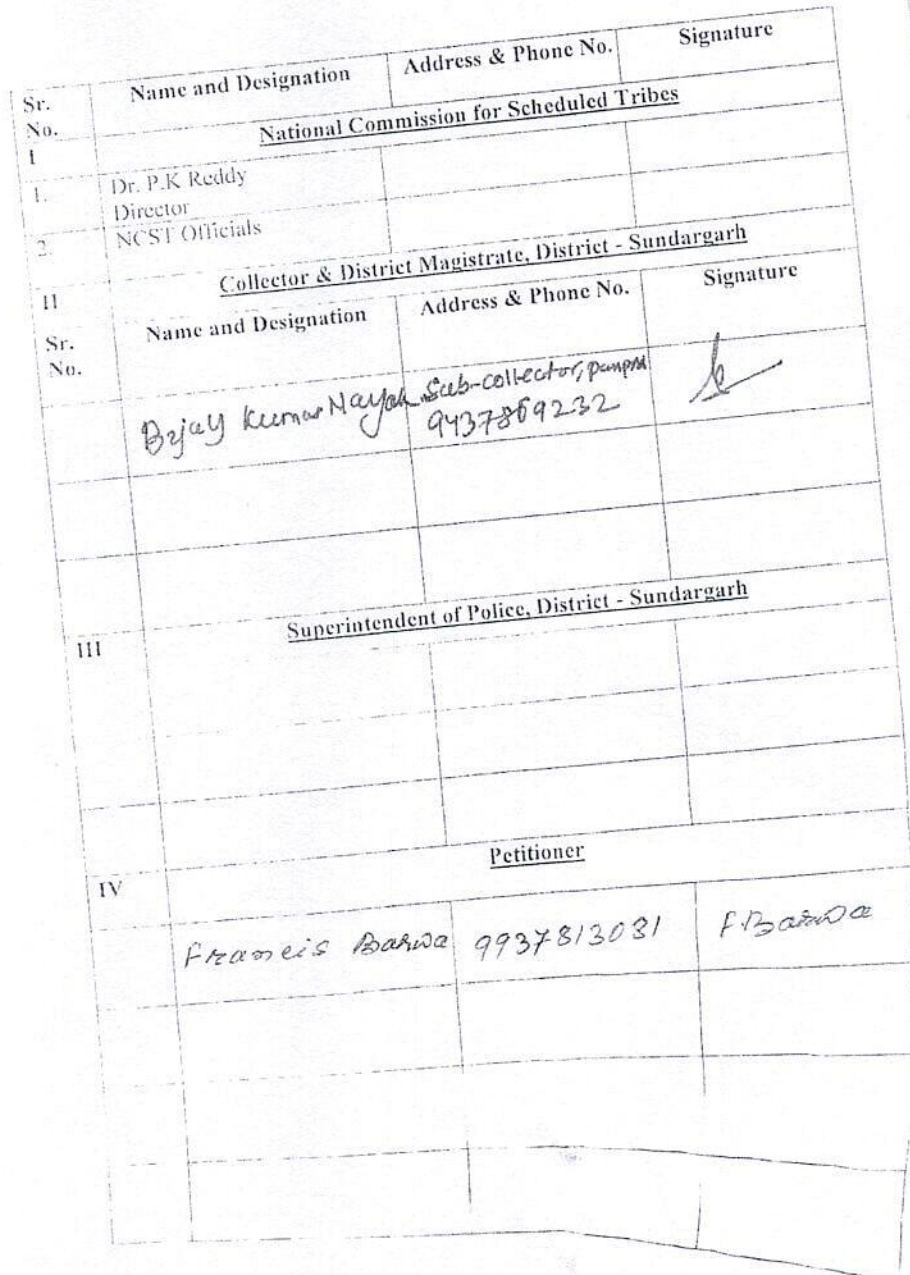 Sr. No. Name and Designation Address & Phone No. Signature
I National Commission for Scheduled Tribes
1. Dr. P.K Reddy
Director
2. NCST Officials
II Collector & District Magistrate, District - Sundargarh
Sr. No. Name and Designation Address & Phone No. Signature
Bijay Kumar Nayak Sub-collector,
9437869232
III Superintendent of Police, District - Sundargarh
IV Petitioner
Francis Barwa 9937813031 F Barwa